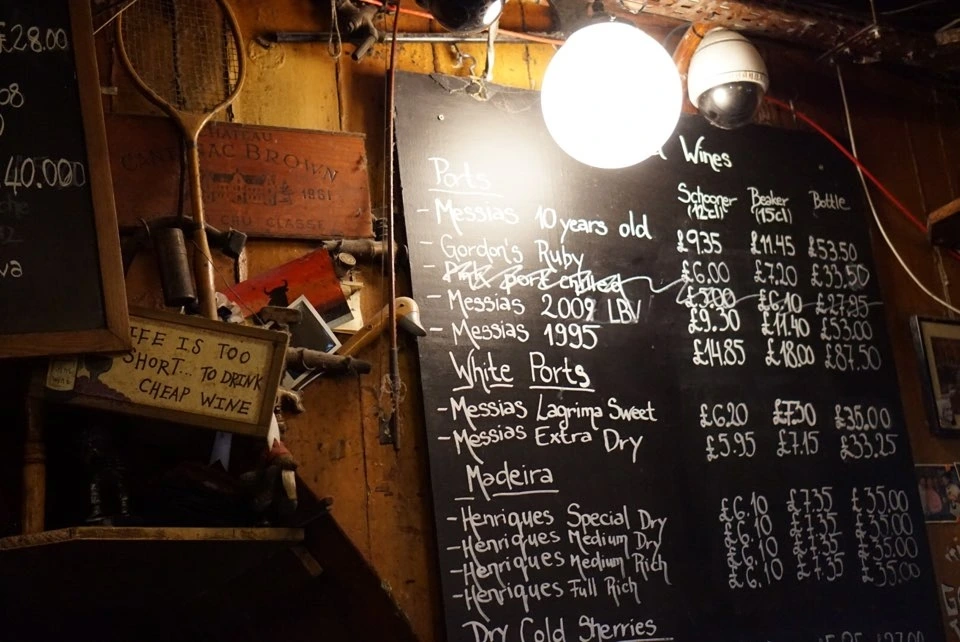 £28.00
40.00
CHATEAU
CANTENAC BROWN
1861
CRU CLASSÉ
LIFE IS TOO
SHORT... TO DRINK
CHEAP WINE
Wines
Ports
Schooner (12cl) Beaker (15cl) Bottle
- Messias 10 years old £9.35 £11.45 £53.50
- Gordon's Ruby £6.00 £7.20 £33.50
- Pink port chilled £5.00 £6.10 £27.95
- Messias 2009 LBV £9.30 £11.40 £53.00
- Messias 1995 £14.85 £18.00 £87.50
White Ports
- Messias Lagrima Sweet £6.20 £7.50 £35.00
- Messias Extra Dry £5.95 £7.15 £33.25
Madeira
- Henriques Special Dry £6.10 £7.35 £35.00
- Henriques Medium Dry £6.10 £7.35 £35.00
- Henriques Medium Rich £6.10 £7.35 £35.00
- Henriques Full Rich £6.10 £7.35 £35.00
Dry Cold Sherries